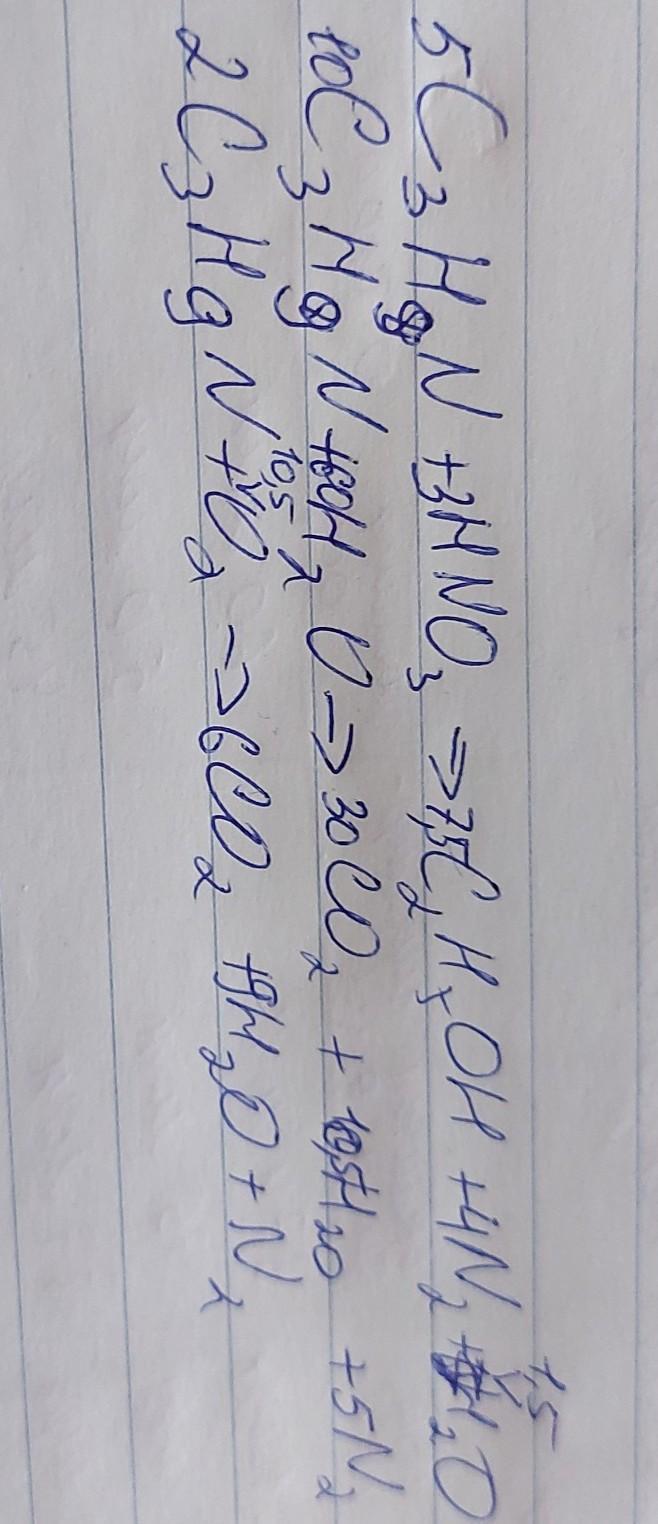 5C₃H₉N + 3HNO₃ => 7,5C₂H₅OH + 4N₂ + 1,5H₂O
10C₃H₉N + 60H₂O -> 30CO₂ + 10,5H₂O + 5N₂
2C₃H₉N + 10,5O₂ -> 6CO₂ + 9H₂O + N₂